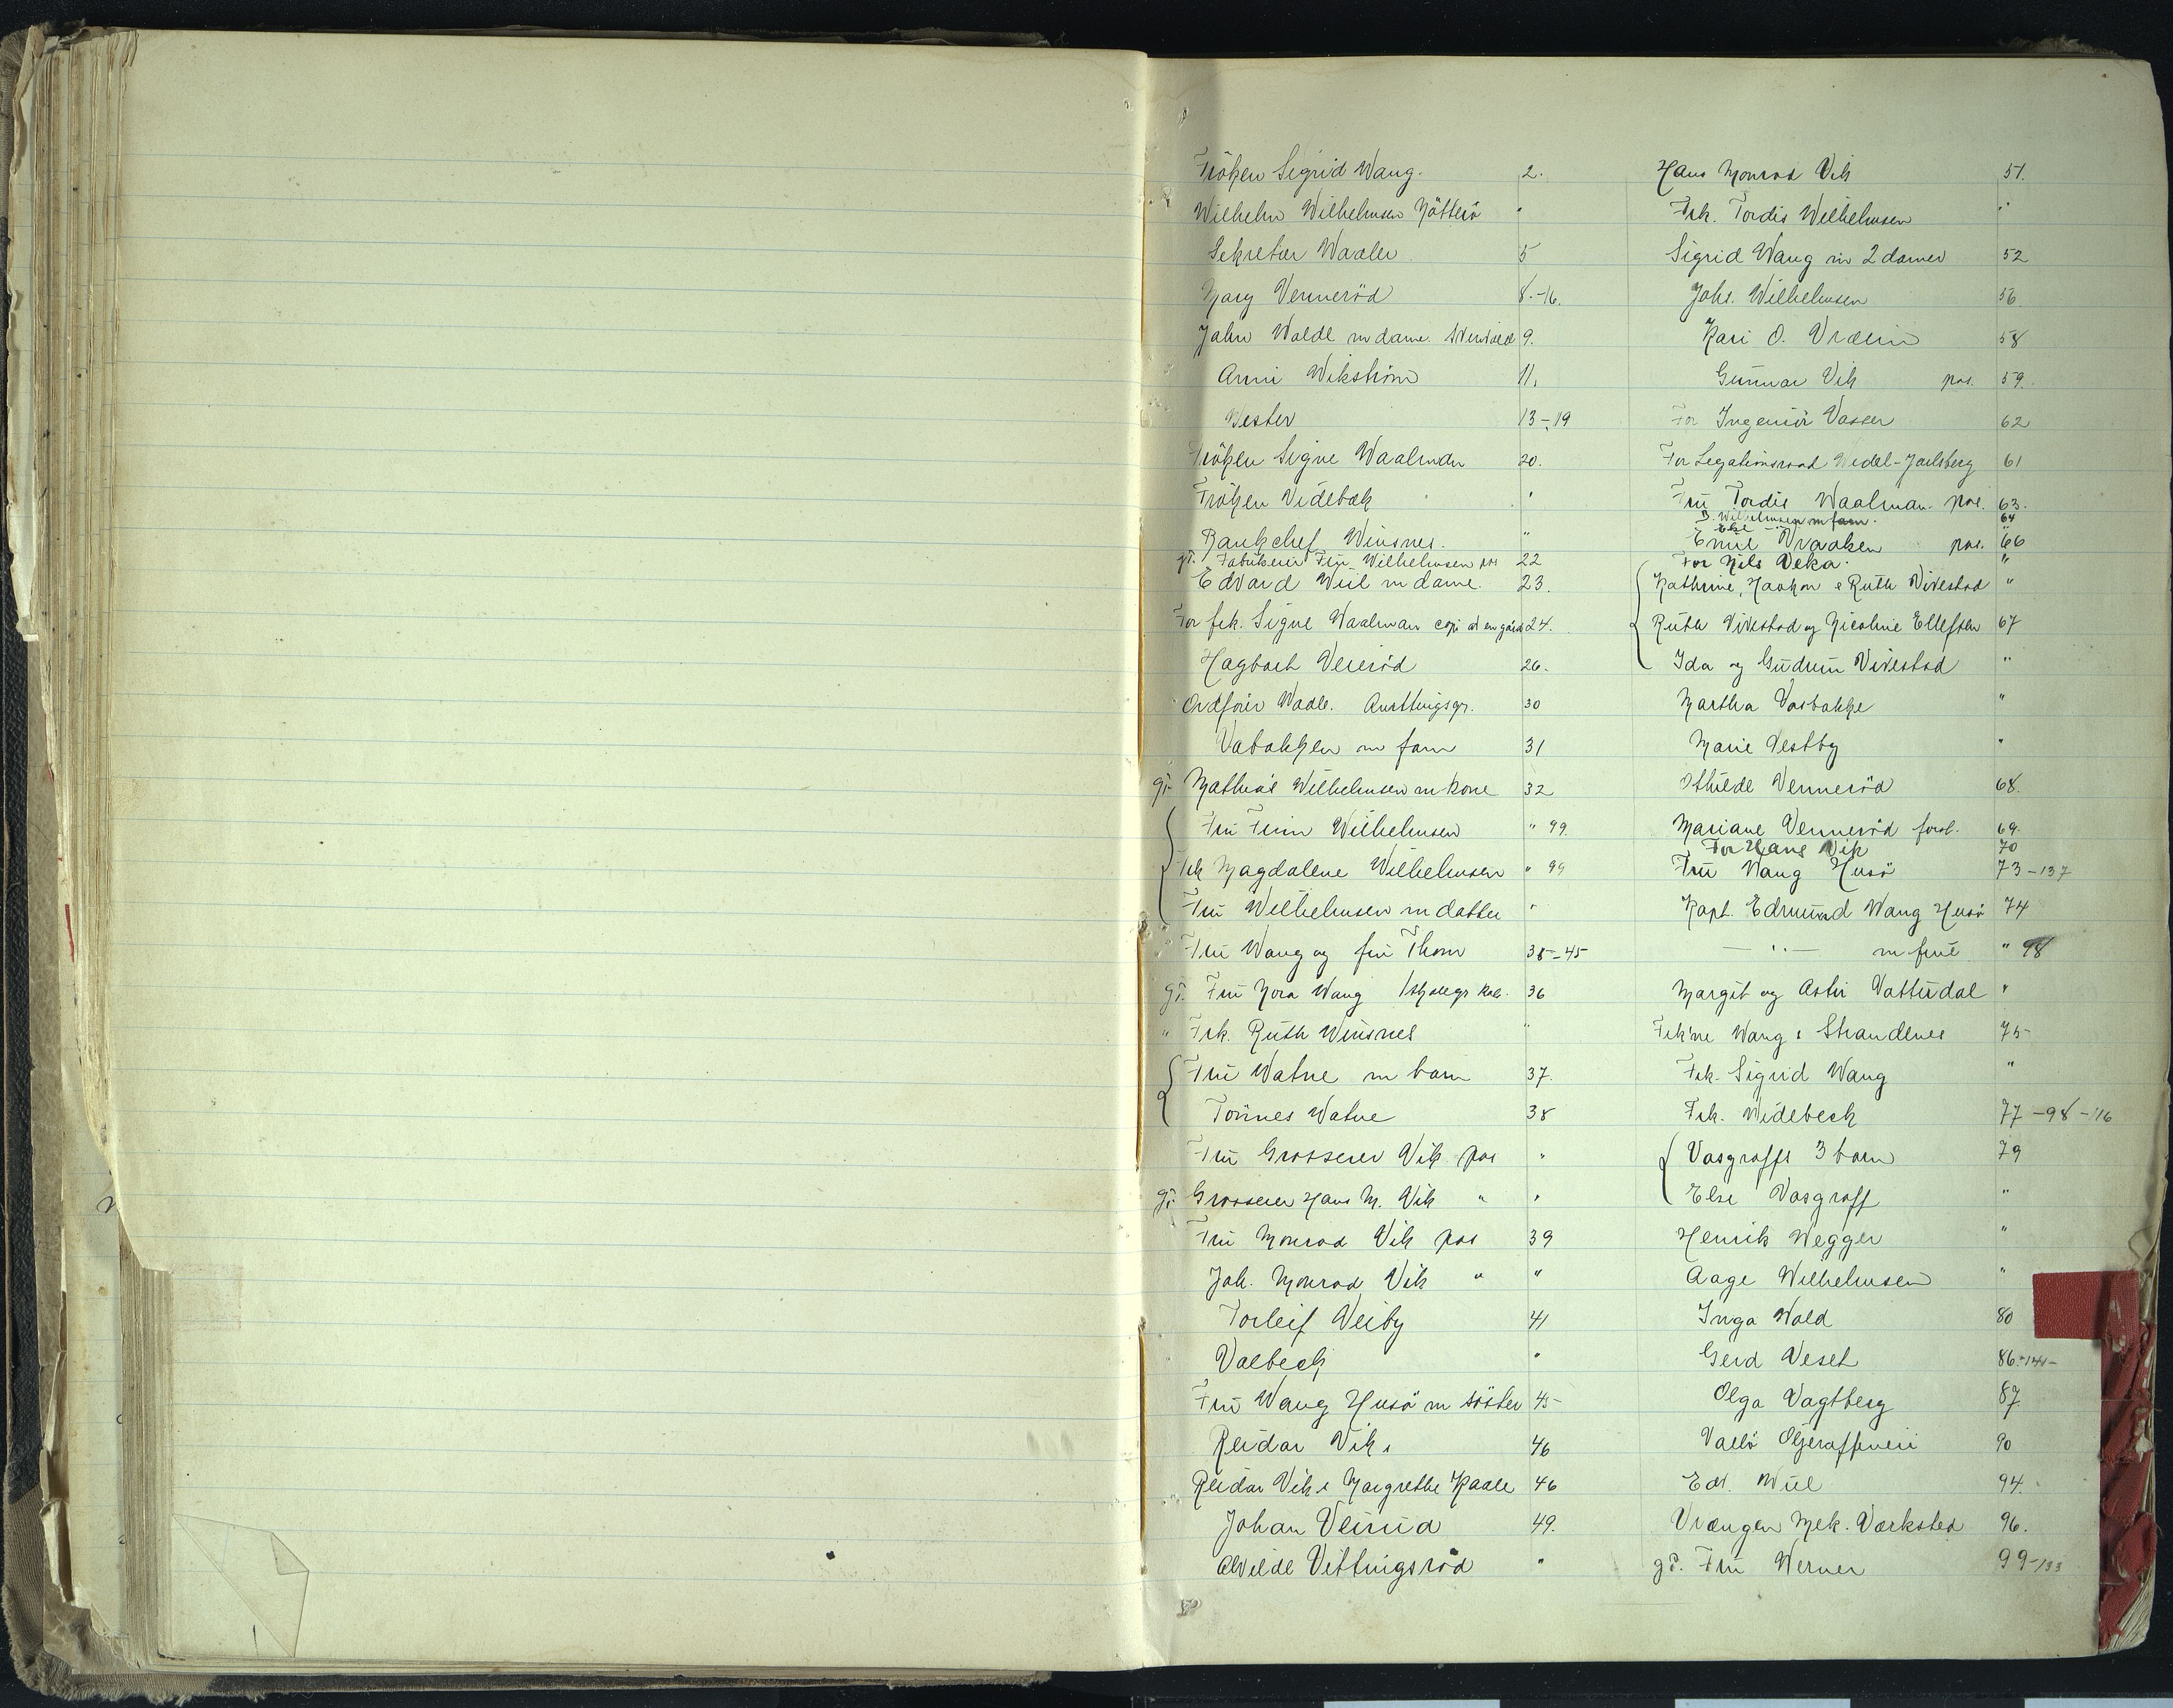 Fröken Sigrid Wang. 2.
Wilhelm Wilhelmsen Nötterö "
Sekretær Waaler 5
Marg Venneröd 8.-16.
John Walde m dame. 9.
Anni Wikström 11.
Wester 13-19
Fröken Signe Waalman 20.
Fröken Videbæk "
Bankchef Winsnes. "
gr. Fabrikeier Finn Wilhelmsen pos 22
Edvard Wiil m dame. 23.
For frk. Signe Waalman copi at en gård 24.
Hagbart Veieröd 26.
Ordförer Wadle. Amttingsgr. 30
Vabakken m fam 31
gr. Mathias Wilhelmsen m kone 32
Fru Finn Wilhelmsen " 99.
Frk Magdalene Wilhelmsen " 99
Fru Wilhelmsen m datter "
Fru Wang og fru Thom 35-45
gr. Fru Nora Wang 36
" Frk. Ruth Winsnes "
Fru Watne m barn 37.
Tönnes Watne 38
Fru Grosserer Vik pos "
gr. Grosserer Hans M. Vik " "
Fru Monrad Vik pos 39
Joh. Monrad Vik " "
Torleif Veiby 41
Valbeck "
Fru Wang Husö m söster 45
Reidar Vik 46
Reidar Vik & Margrethe Kaale 46
Johan Veirud 49.
Alvilde Vittingsröd "
Hans Monrad Vik 51.
Frk. Tordis Wilhelmsen "
Sigrid Wang m 2 damer 52
Johs. Wilhelmsen 56
Kari O. Vraalin 58
Gunnar Vik pos. 59.
For Ingeniör Vasser 62
For Legationsraad Wedel-Jarlsberg 61
Fru Tordis Waalman pos. 63.
B. Wilhelmsen m fam. 64
Emil Vraaken pos. 66
For Nils Veka. "
Kathrine, Haakon & Ruth Vivestad "
Ruth Vivestad og Nicoline Ellefsen 67
Ida og Gudrun Vivestad "
Martha Vasbakke "
Marie Vestby "
Othilde Venneröd 68.
Mariane Venneröd forst. 69.
For Hans Vik 70
Fru Wang Husö 73-137
Kapt. Edmund Wang Husö 74
— " — m frue " 98
Margit og Astri Vattudal "
Frk'ne Wang & Strandenes 75
Frk. Sigrid Wang "
Frk. Widebeck 77-98-116
Vasgraffs 3 barn 79
Else Vasgraff "
Henrik Wegger "
Aage Wilhelmsen "
Inga Wold 80
Gerd Veset 86-141-
Olga Vagtberg 87
Vallö Oljeraffineri 90
Edv. Wiil 94.
Vrængen Mek. Værksted 96.
gr. Fru Werner 99-133